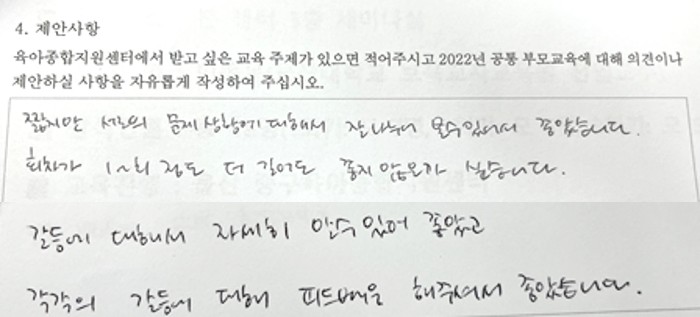 4. 제안사항
육아종합지원센터에서 받고 싶은 교육 주제가 있으면 적어주시고 2022년 공통 부모교육에 대해 의견이나
제안하실 사항을 자유롭게 작성하여 주십시오.
짧지만 서로의 문제상황에 대해서 잘 나누어 볼수있어서 좋았습니다.
회차가 1~회 정도 더 길어도 좋지 않을까 싶습니다.
갈등에 대해서 자세히 알수 있어 좋았고
각각의 갈등에 대해 피드백을 해주셔서 좋았습니다.